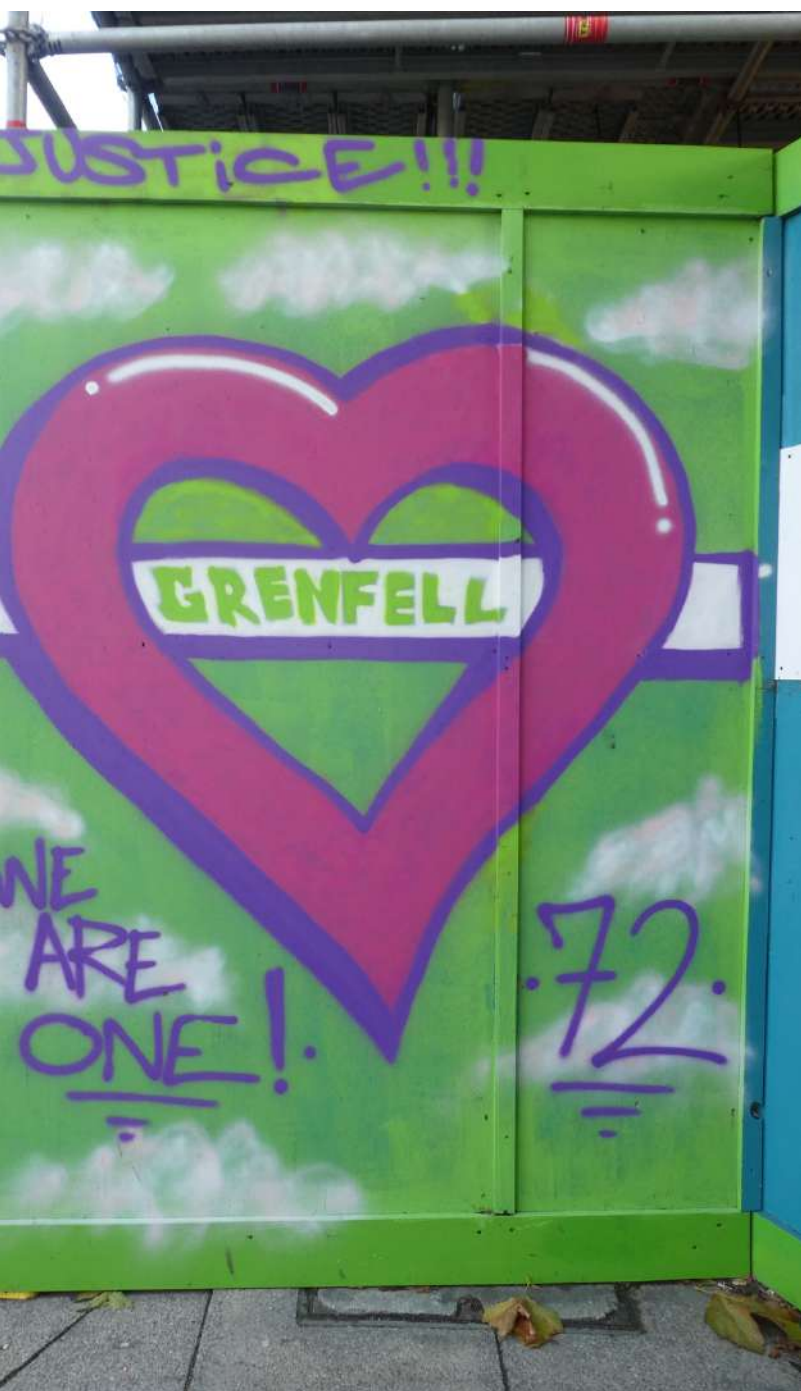 JUSTiCE!!!
GRENFELL
WE
ARE
ONE!
72